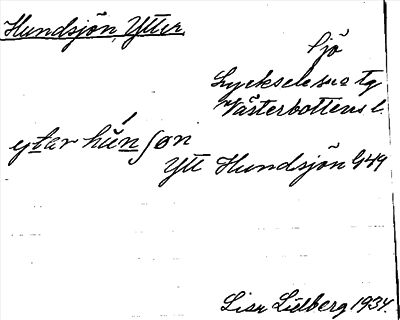 Hundsjön, Ytter
Sjö
Lycksele sn o tg
Västerbottens l.
ytar hún∫øn
Ytt Hundsjön G49
Lisa Lidberg 1934.